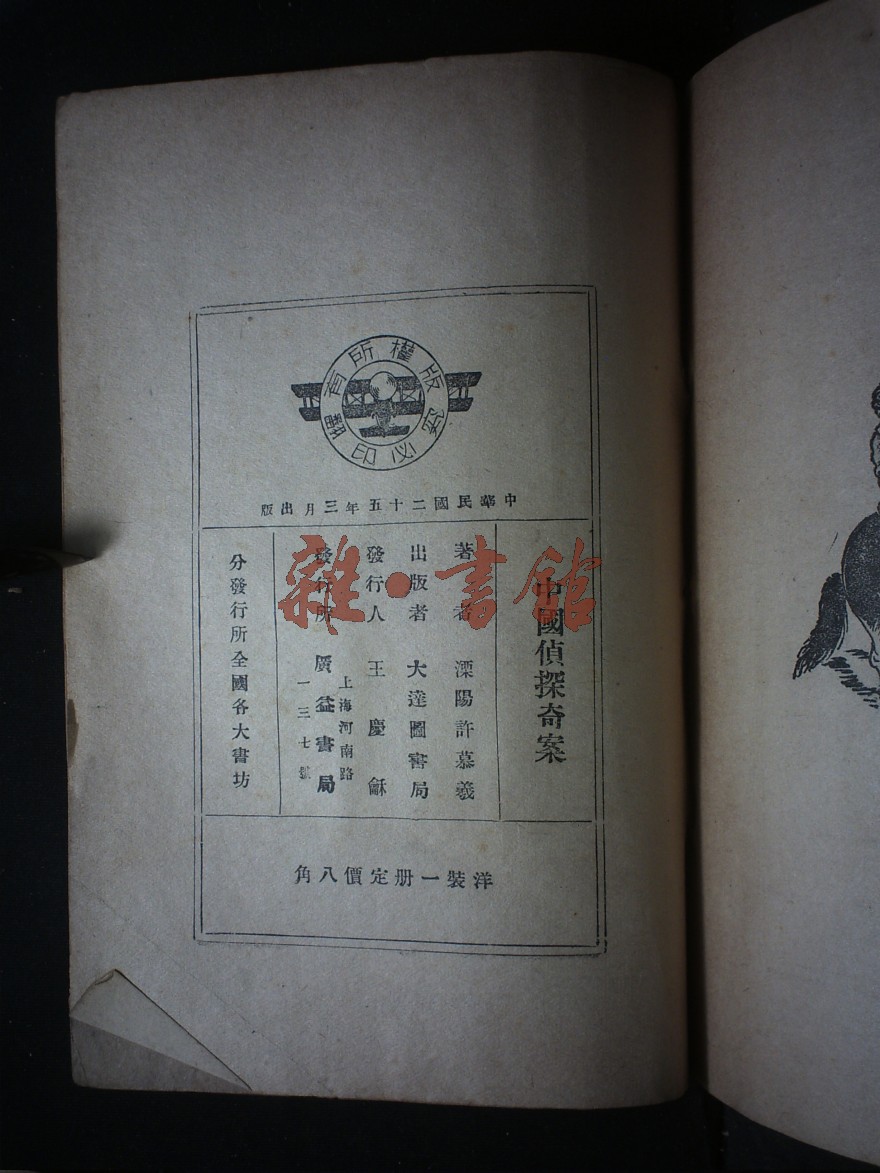 版權所有
翻印必究
中華民國二十五年三月出版
中國偵探奇案
著者 溧陽許慕羲
出版者 大達圖書局
發行人 王慶龢
發行所 廣益書局
上海河南路
一三七號
分發行所全國各大書坊
洋裝一册定價八角
雜·書館